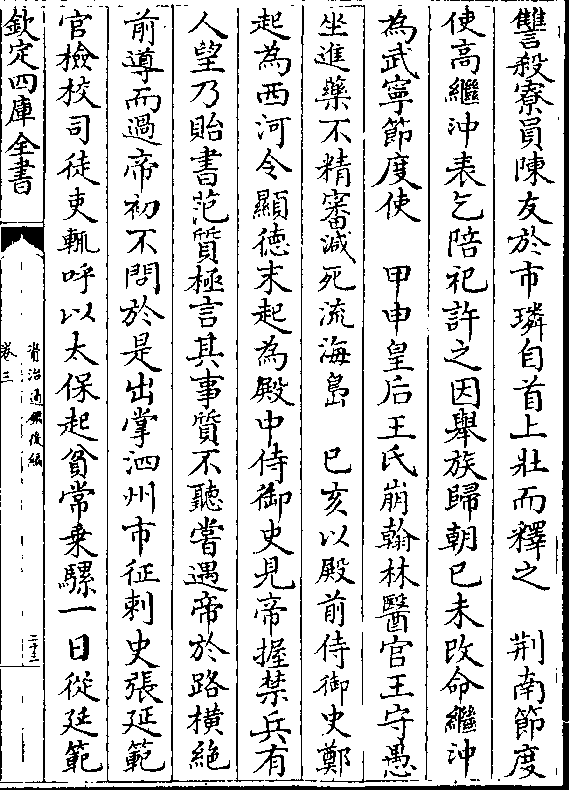 讐殺寮員陳友於市璘自首上壯而釋之　荆南節度
使高繼沖表乞陪祀許之因舉族歸朝已未改命繼沖
為武寧節度使　甲申皇后王氏崩翰林醫官王守愚
坐進藥不精審減死流海島　已亥以殿前侍御史鄭
起為西河令顯德末起為殿中侍御史見帝握禁兵有
人望乃貽書范質極言其事質不聽嘗遇帝於路橫絶
前導而過帝初不問於是出掌泗州市征刺史張延範
官檢校司徒吏輒呼以太保起貧常乗騾一日從延範
欽定四庫全書
資治通鑑後編
卷三
二十三